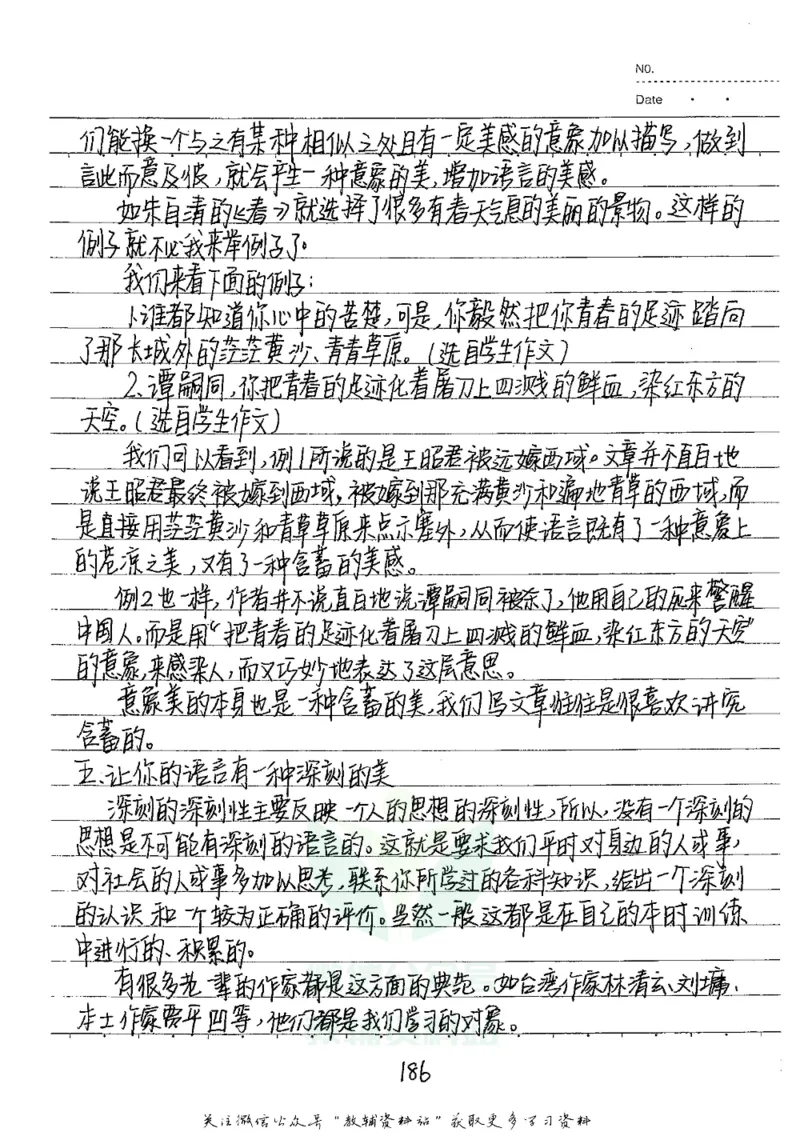 NO.
Date
们能换一个与之有某种相似之处且有一定美感的意象加以描写,做到
言此而意及彼,就会产生一种意象的美,增加语言的美感。
如朱自清的《春》就选择了很多有春天气息的美丽的景物。这样的
例子就不必我来举例子了。
我们来看下面的例子:
1.谁都知道你心中的苦楚,可是,你毅然把你青春的足迹踏向
了那长城外的茫茫黄沙、青青草原。(选自学生作文)
2.谭嗣同,你把青春的足迹化着屠刀上四溅的鲜血,染红东方的
天空。(选自学生作文)
我们可以看到,例1所说的是王昭君被远嫁西域。文章并不直白地
说王昭君最终被嫁到西域,被嫁到那充满黄沙和遍地青草的西域,而
是直接用茫茫黄沙和青草草原来点示塞外,从而使语言既有了一种意象上
的苍凉之美,又有了一种含蓄的美感。
例2也一样,作者并不说直白地说谭嗣同被杀了,他用自己的死来警醒
中国人。而是用“把青春的足迹化着屠刀上四溅的鲜血,染红东方的天空”
的意象,来感染人,而又巧妙地表达了这层意思。
意象美的本身也是一种含蓄的美,我们写文章往往是很喜欢讲究
含蓄的。
五、让你的语言有一种深刻的美
深刻的深刻性主要反映一个人的思想的深刻性,所以,没有一个深刻的
思想是不可能有深刻的语言的。这就是要求我们平时对身边的人或事,
对社会的人或事多加以思考,联系你所学过的各科知识,给出一个深刻
的认识和一个较为正确的评价。当然一般这都是在自己的本时训练
中进行的、积累的。
有很多老一辈的作家都是这方面的典范。如台湾作家林清玄、刘墉、
本土作家贾平凹等,他们都是我们学习的对象。
186
关注微信公众号"教辅资料站"获取更多学习资料